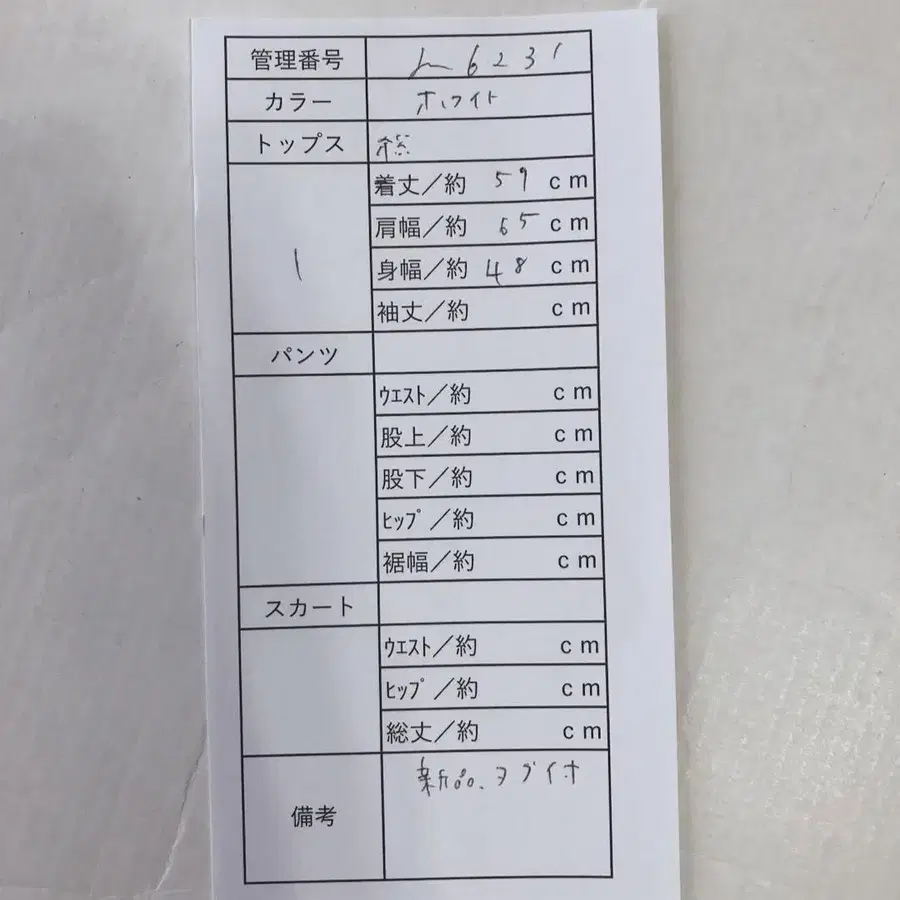 管理番号 6231
カラー ホワイト
トップス
着丈／約 59 cm
1 肩幅／約 65 cm
身幅／約 48 cm
袖丈／約 cm
パンツ
ウエスト／約 cm
股上／約 cm
股下／約 cm
ヒップ／約 cm
裾幅／約 cm
スカート
ウエスト／約 cm
ヒップ／約 cm
総丈／約 cm
備考 新品、タグ付